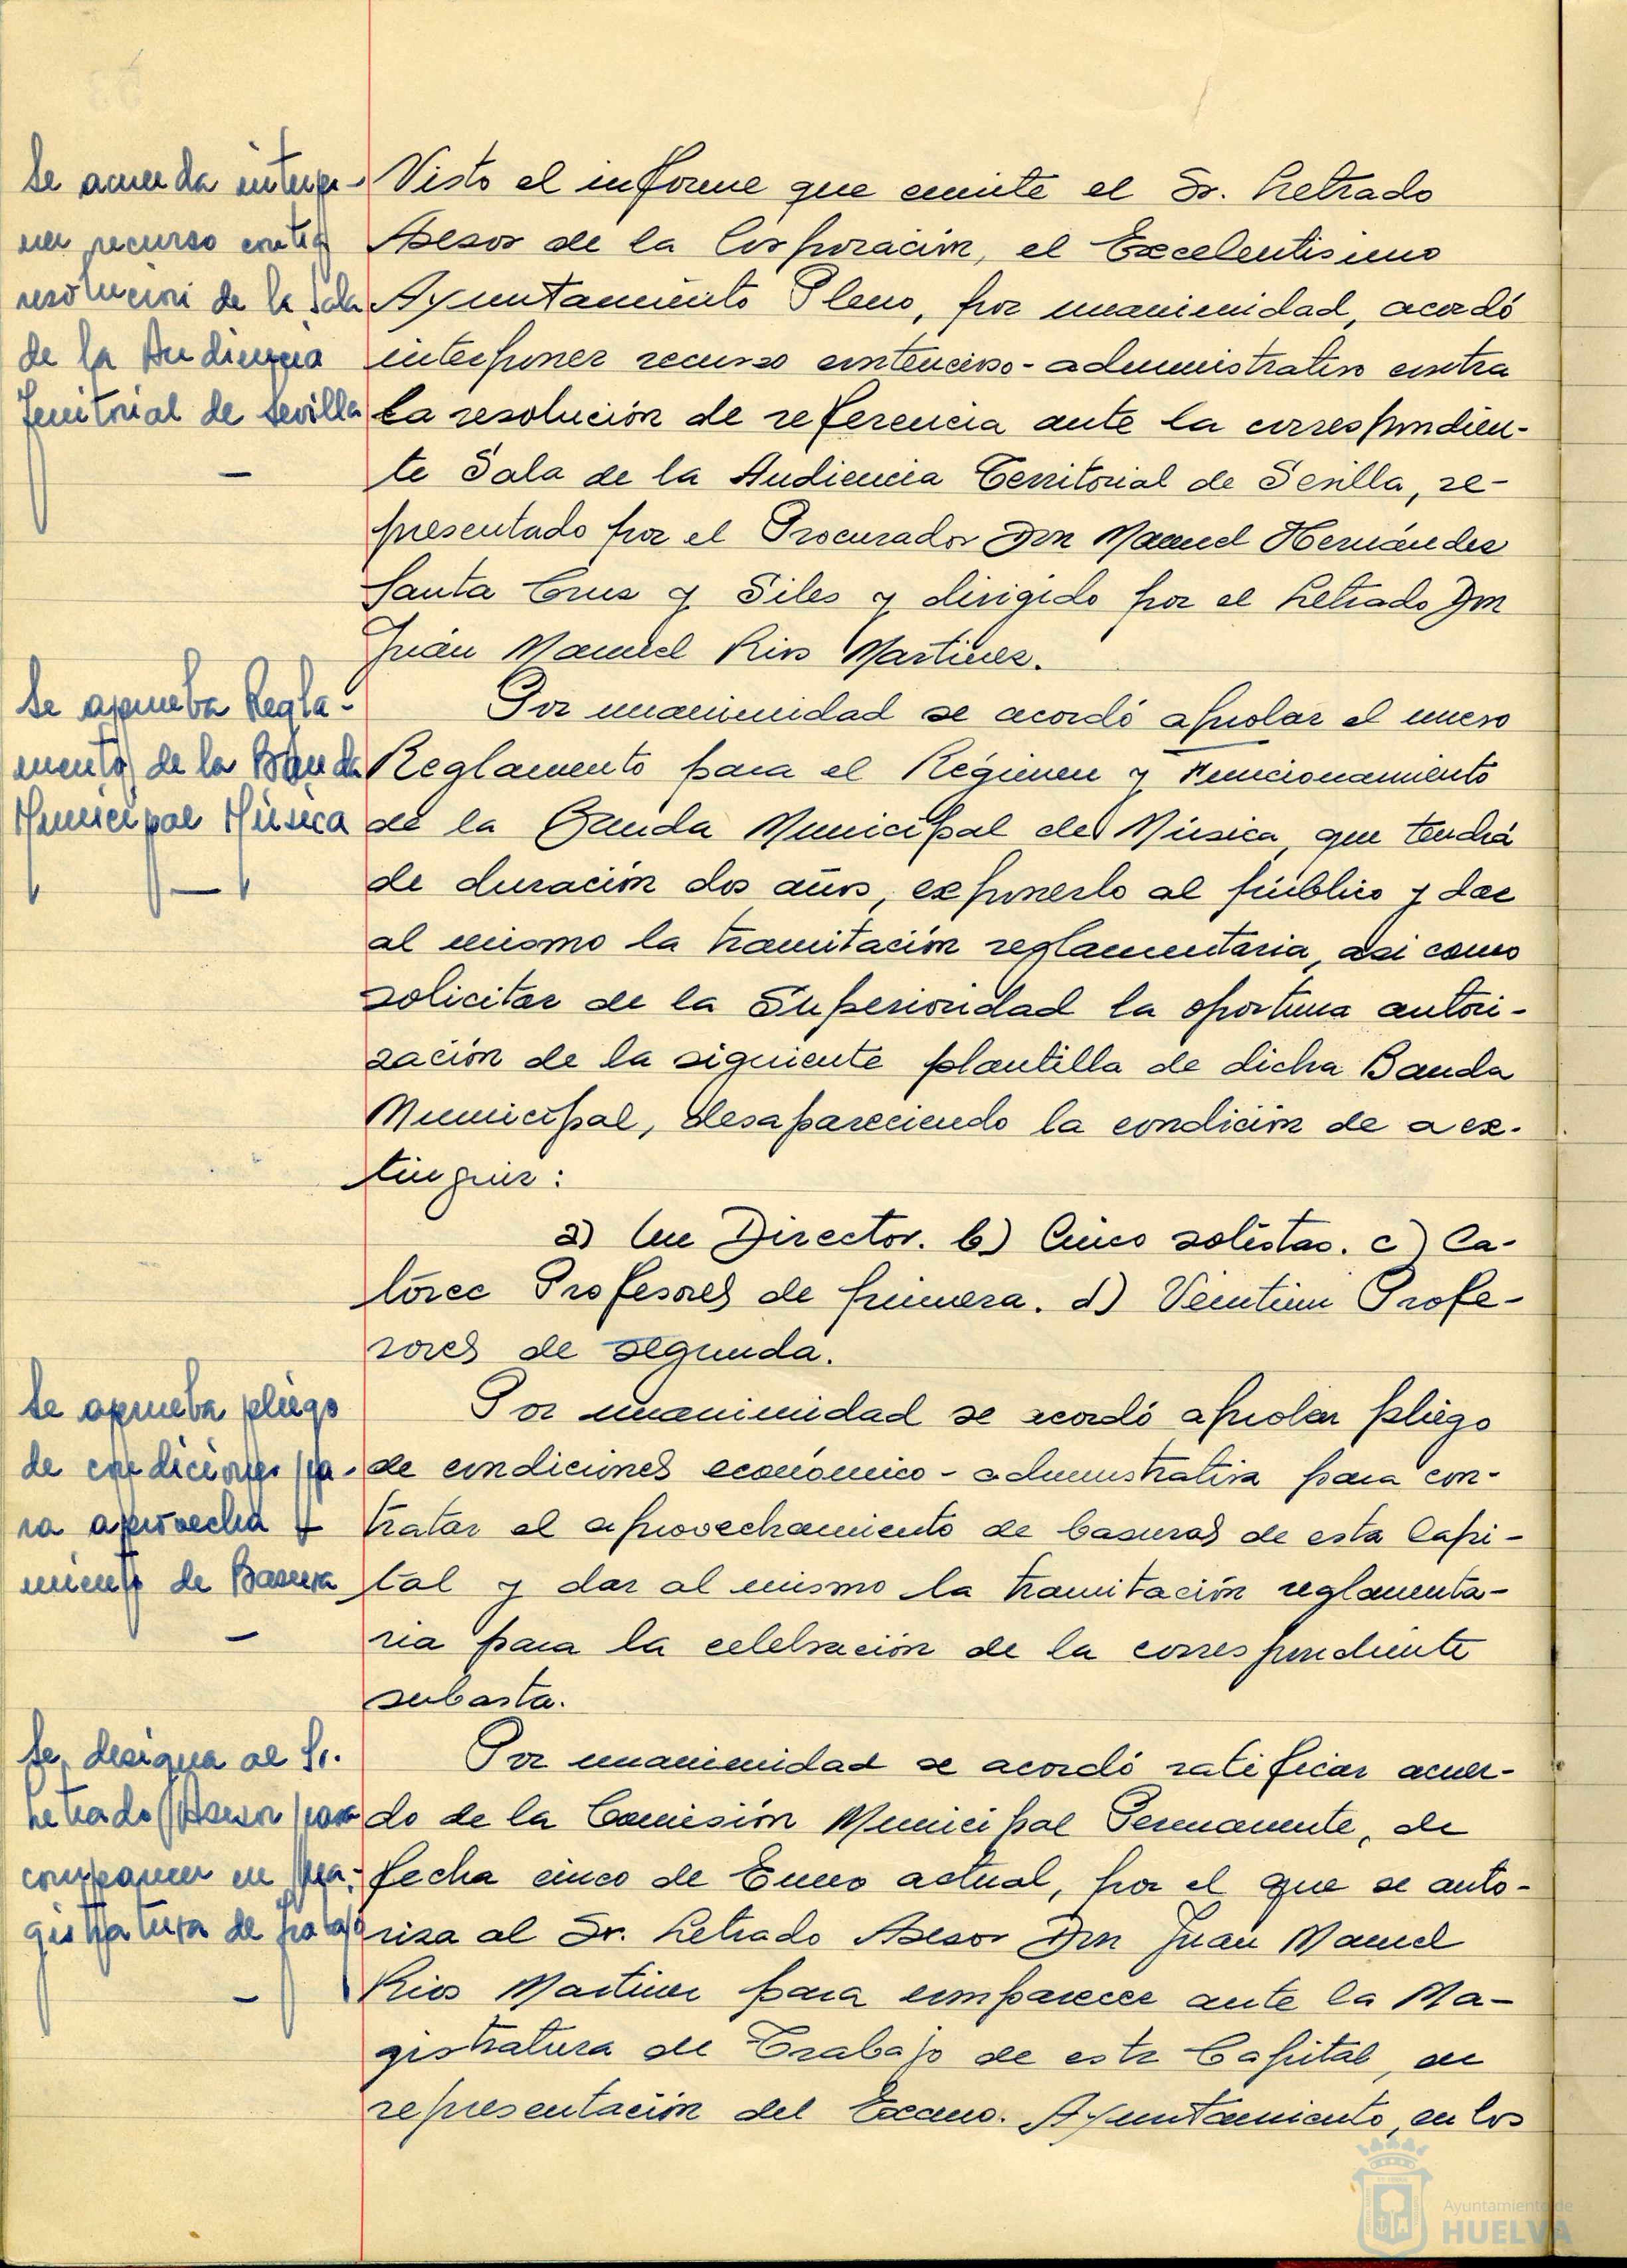 Se acuerda interpo-
ner recurso contra
resolución de la Sala
de la Audiencia
Territorial de Sevilla
Visto el informe que emite el Sr. Letrado
Asesor de la Corporación, el Excelentísimo
Ayuntamiento Pleno, por unanimidad, acordó
interponer recurso contencioso-administrativo contra
la resolución de referencia ante la correspondien-
te Sala de la Audiencia Territorial de Sevilla, re-
presentado por el Procurador Don Manuel Hernández
Santa Cruz y Siles y dirigido por el Letrado Don
Juan Manuel Rios Martinez.
Se aprueba Regla-
mento de la Banda
Municipal Música
Por unanimidad se acordó aprobar el nuevo
Reglamento para el Régimen y Funcionamiento
de la Banda Municipal de Música, que tendrá
de duración dos años, exponerlo al público y dar
al mismo la tramitación reglamentaria, asi como
solicitar de la Superioridad la oportuna autori-
zación de la siguiente plantilla de dicha Banda
Municipal, desapareciendo la condición de a ex-
tinguir:
a) Un Director. b) Cinco solistas. c) Ca-
torce Profesores de primera. d) Veintiun Profe-
sores de segunda.
Se aprueba pliego
de condiciones pa-
ra aprovecha-
miento de Basura
Por unanimidad se acordó aprobar pliego
de condiciones económico-administrativa para con-
tratar el aprovechamiento de basuras de esta Capi-
tal y dar al mismo la tramitación reglamenta-
ria para la celebración de la correspondiente
subasta.
Se designa al Sr.
Letrado Asesor para
comparecer en Ma-
gistratura de Trabajo
Por unanimidad se acordó ratificar acuer-
do de la Comisión Municipal Permanente, de
fecha cinco de Enero actual, por el que se auto-
riza al Sr. Letrado Asesor Don Juan Manuel
Rios Martinez para comparecer ante la Ma-
gistratura de Trabajo de esta Capital, en
representación del Excmo. Ayuntamiento, en los
Ayuntamiento de
HUELVA